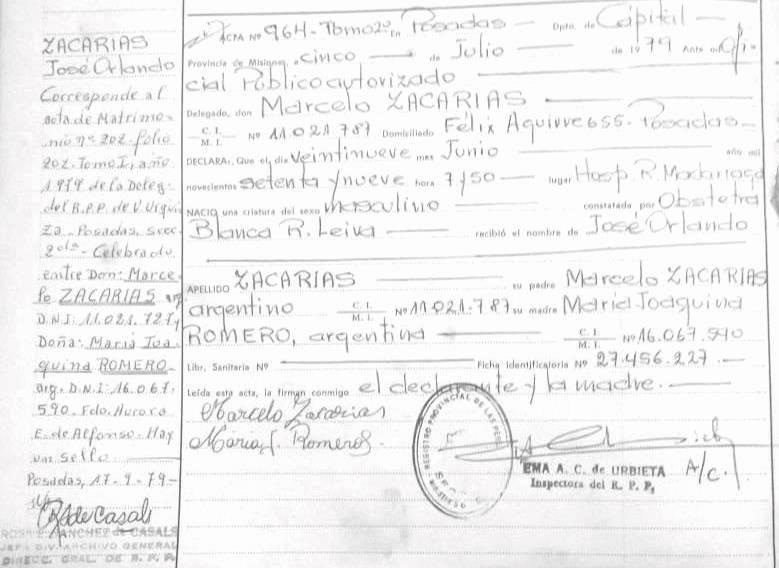 ZACARIAS
José Orlando
Corresponde al
acta de Matrimo-
nio nº 202. folio
202. Tomo I, año
1979 de la Deleg.
del R.P.P. de V. Urqui
za - Posadas, secc
2da - Celebrado
entre Don: Marce-
lo ZACARIAS arg.
D.N.I: 11.021.727 y
Doña: María Joa
quina ROMERO -
arg. D.N.I: 16.067.
590. Fdo. Aurora
E. de Alfonso. Hay
un sello
Posadas, 17-9-79-
RdeCasals
ROSA E. SANCHEZ de CASALS
JEF. DIV. ARCHIVO GENERAL
DIRECC. GRAL. DE R. P. P.
ACTA Nº 964 - Tomo 2º En Posadas - Dpto. de Capital -
Provincia de Misiones, cinco de Julio de 1979 Ante mí Ofi-
cial Público autorizado
Delegado, don Marcelo ZACARIAS
C. I. M. I. Nº 11.021.787 Domiciliado Félix Aguirre 655. Posadas -
DECLARA: Que el día veintinueve mes Junio año mil
novecientos setenta y nueve hora 7y50 - lugar Hosp. R. Madariaga
NACIO una criatura del sexo masculino constatada por Obstetra
Blanca R. Leiva - recibió el nombre de José Orlando
APELLIDO ZACARIAS su padre Marcelo ZACARIAS
argentino C. I. M. I. Nº 11.021.787 su madre María Joaquina
ROMERO, argentina C. I. M. I. Nº 16.067.590
Libr. Sanitaria Nº Ficha Identificatoria Nº 27.456.227.-
Leída esta acta, la firman conmigo el declarante y la madre.-
Marcelo Zacarias
Maria J. Romero
REGISTRO PROVINCIAL DE LAS PERSONAS
EMA A. C. de URBIETA A/C.
Inspectora del R. P. P.